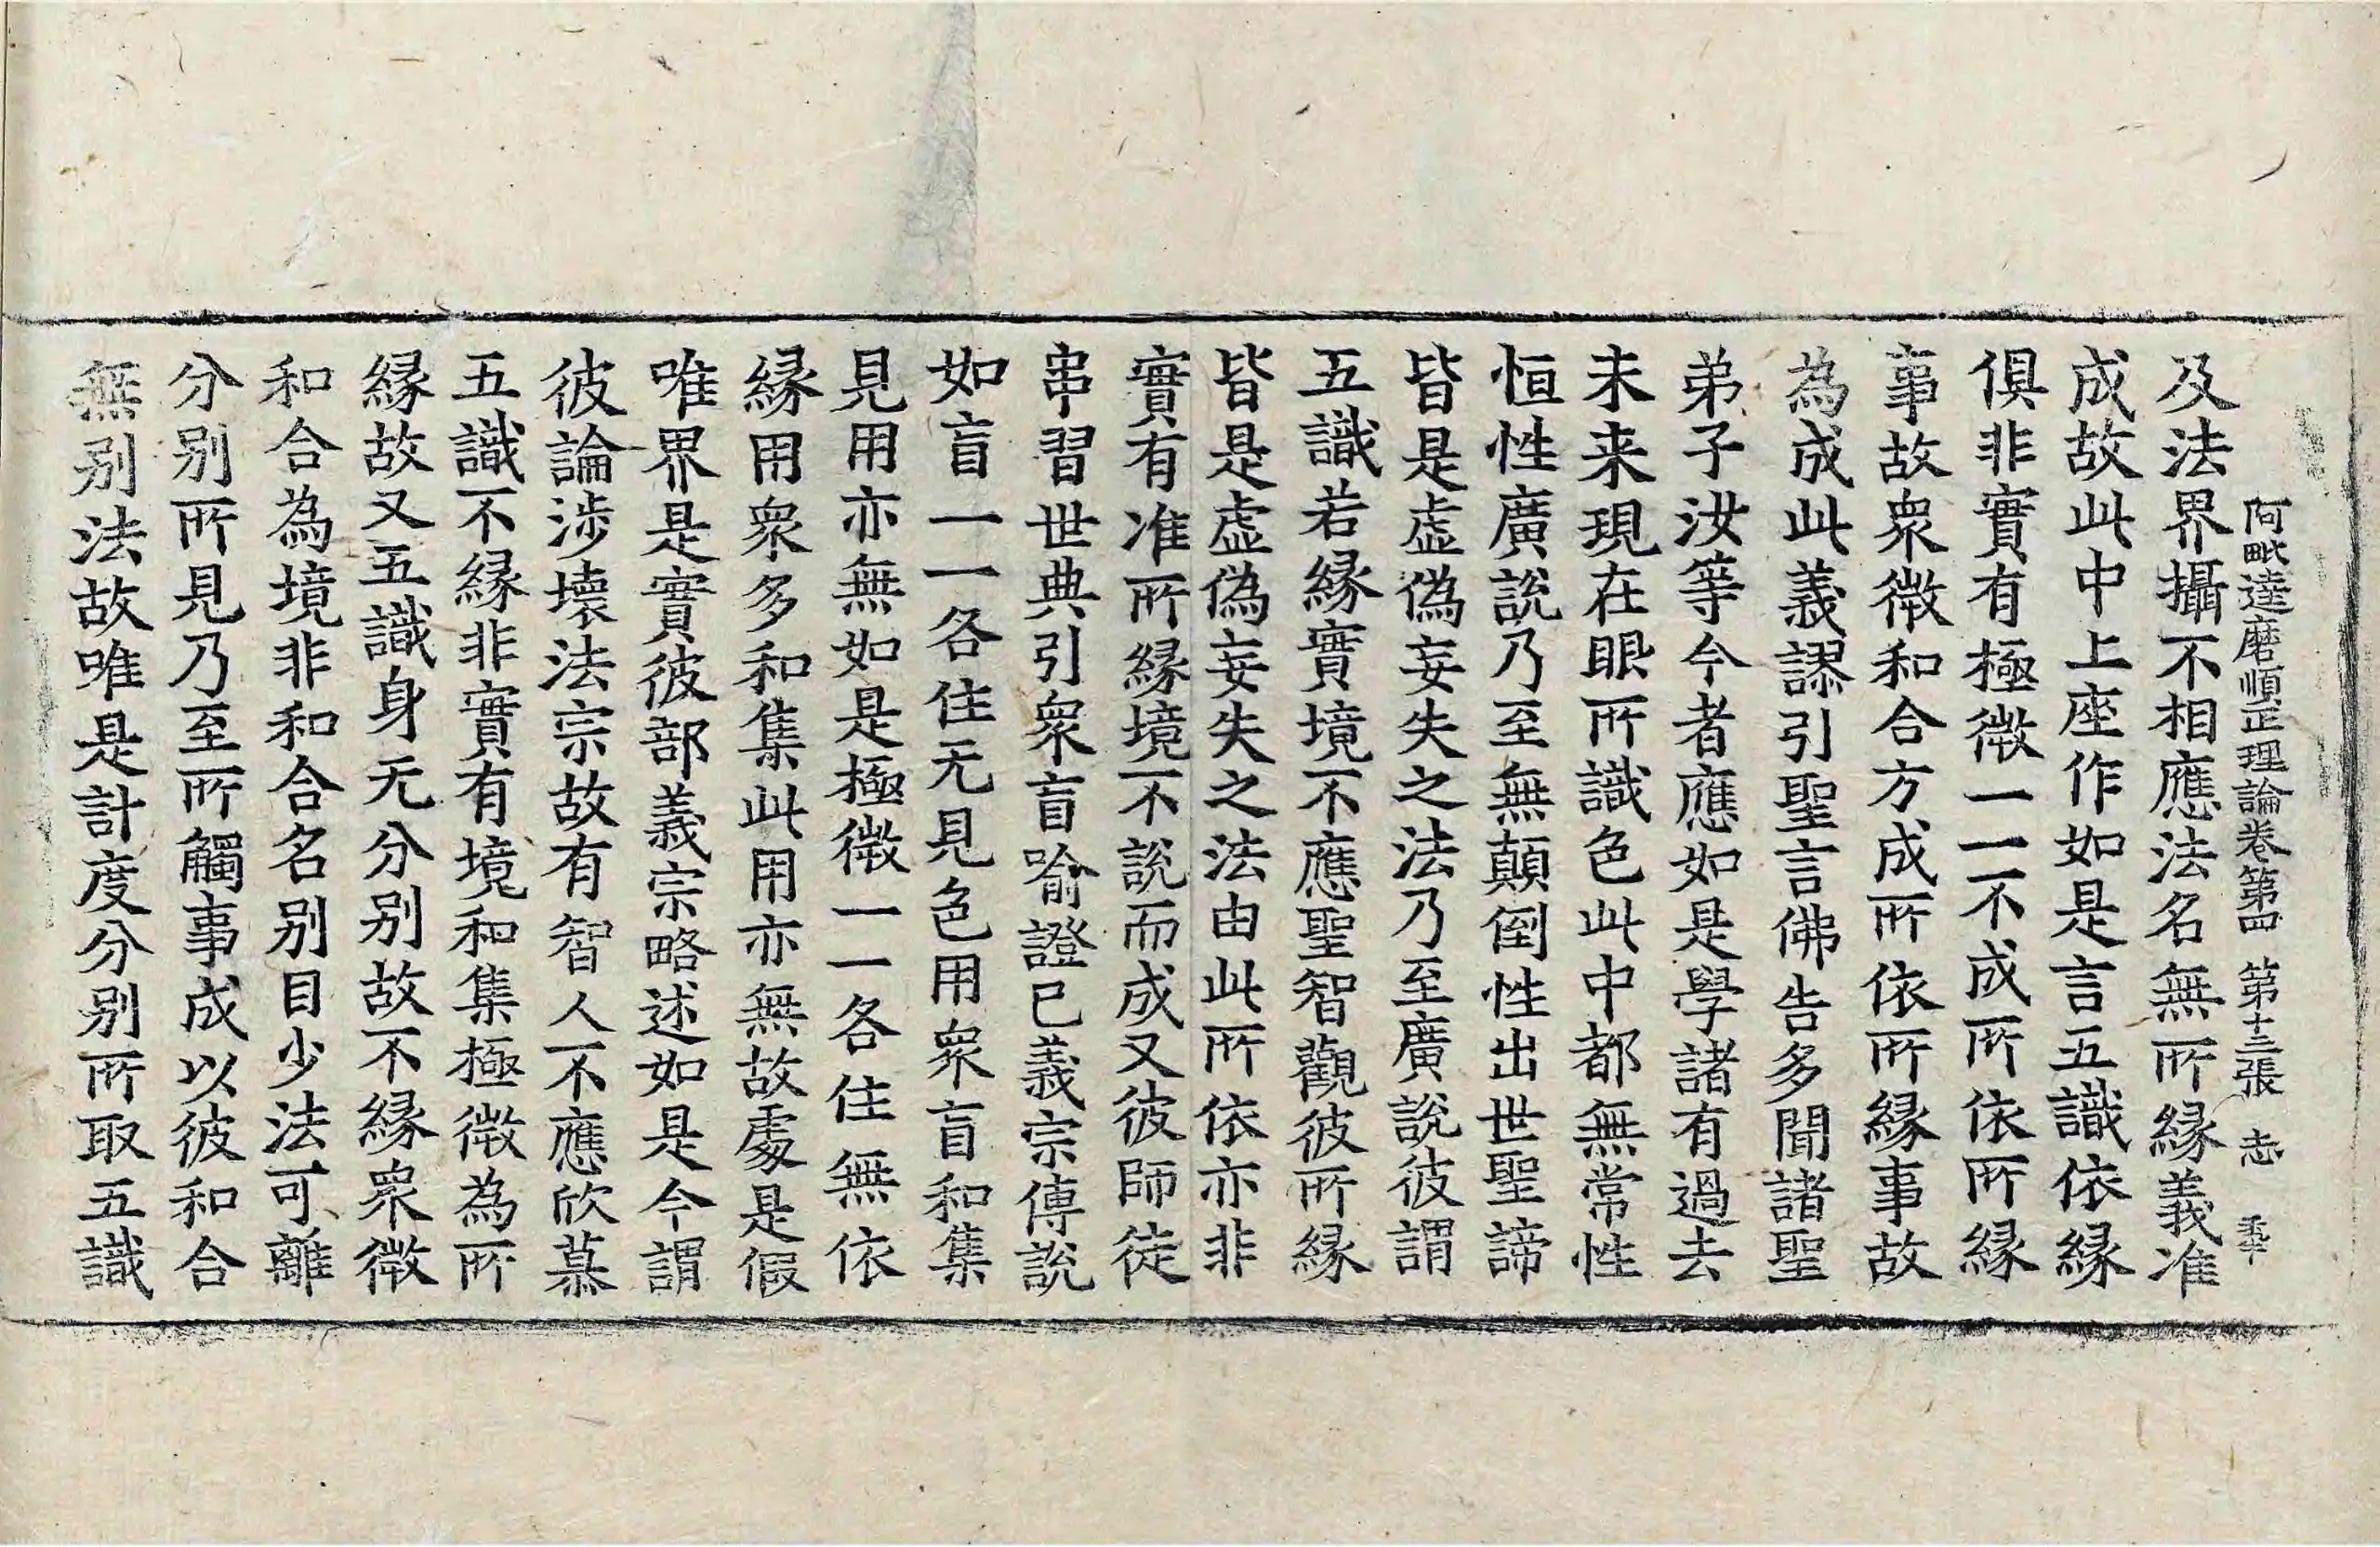 阿毗達磨順正理論卷第四 第十三張 志
及法界攝不相應法名無所縁義准
成故此中上座作如是言五識依縁
俱非實有極微一一不成所依所縁
事故衆微和合方成所依所縁事故
為成此義謬引聖言佛告多聞諸聖
弟子汝等今者應如是學諸有過去
未来現在眼所識色此中都無常性
恒性廣說乃至無顛倒性出世聖諦
皆是虚偽妄失之法乃至廣說彼謂
五識若縁實境不應聖智觀彼所縁
皆是虚偽妄失之法由此所依亦非
實有准所縁境不說而成又彼師徒
串習世典引衆盲喻證已義宗傳說
如盲一一各住无見色用衆盲和集
見用亦無如是極微一一各住無依
縁用衆多和集此用亦無故處是假
唯界是實彼部義宗略述如是今謂
彼論涉壞法宗故有智人不應欣慕
五識不縁非實有境和集極微為所
縁故又五識身无分别故不縁衆微
和合為境非和合名别目少法可離
分别所見乃至所觸事成以彼和合
無别法故唯是計度分别所取五識